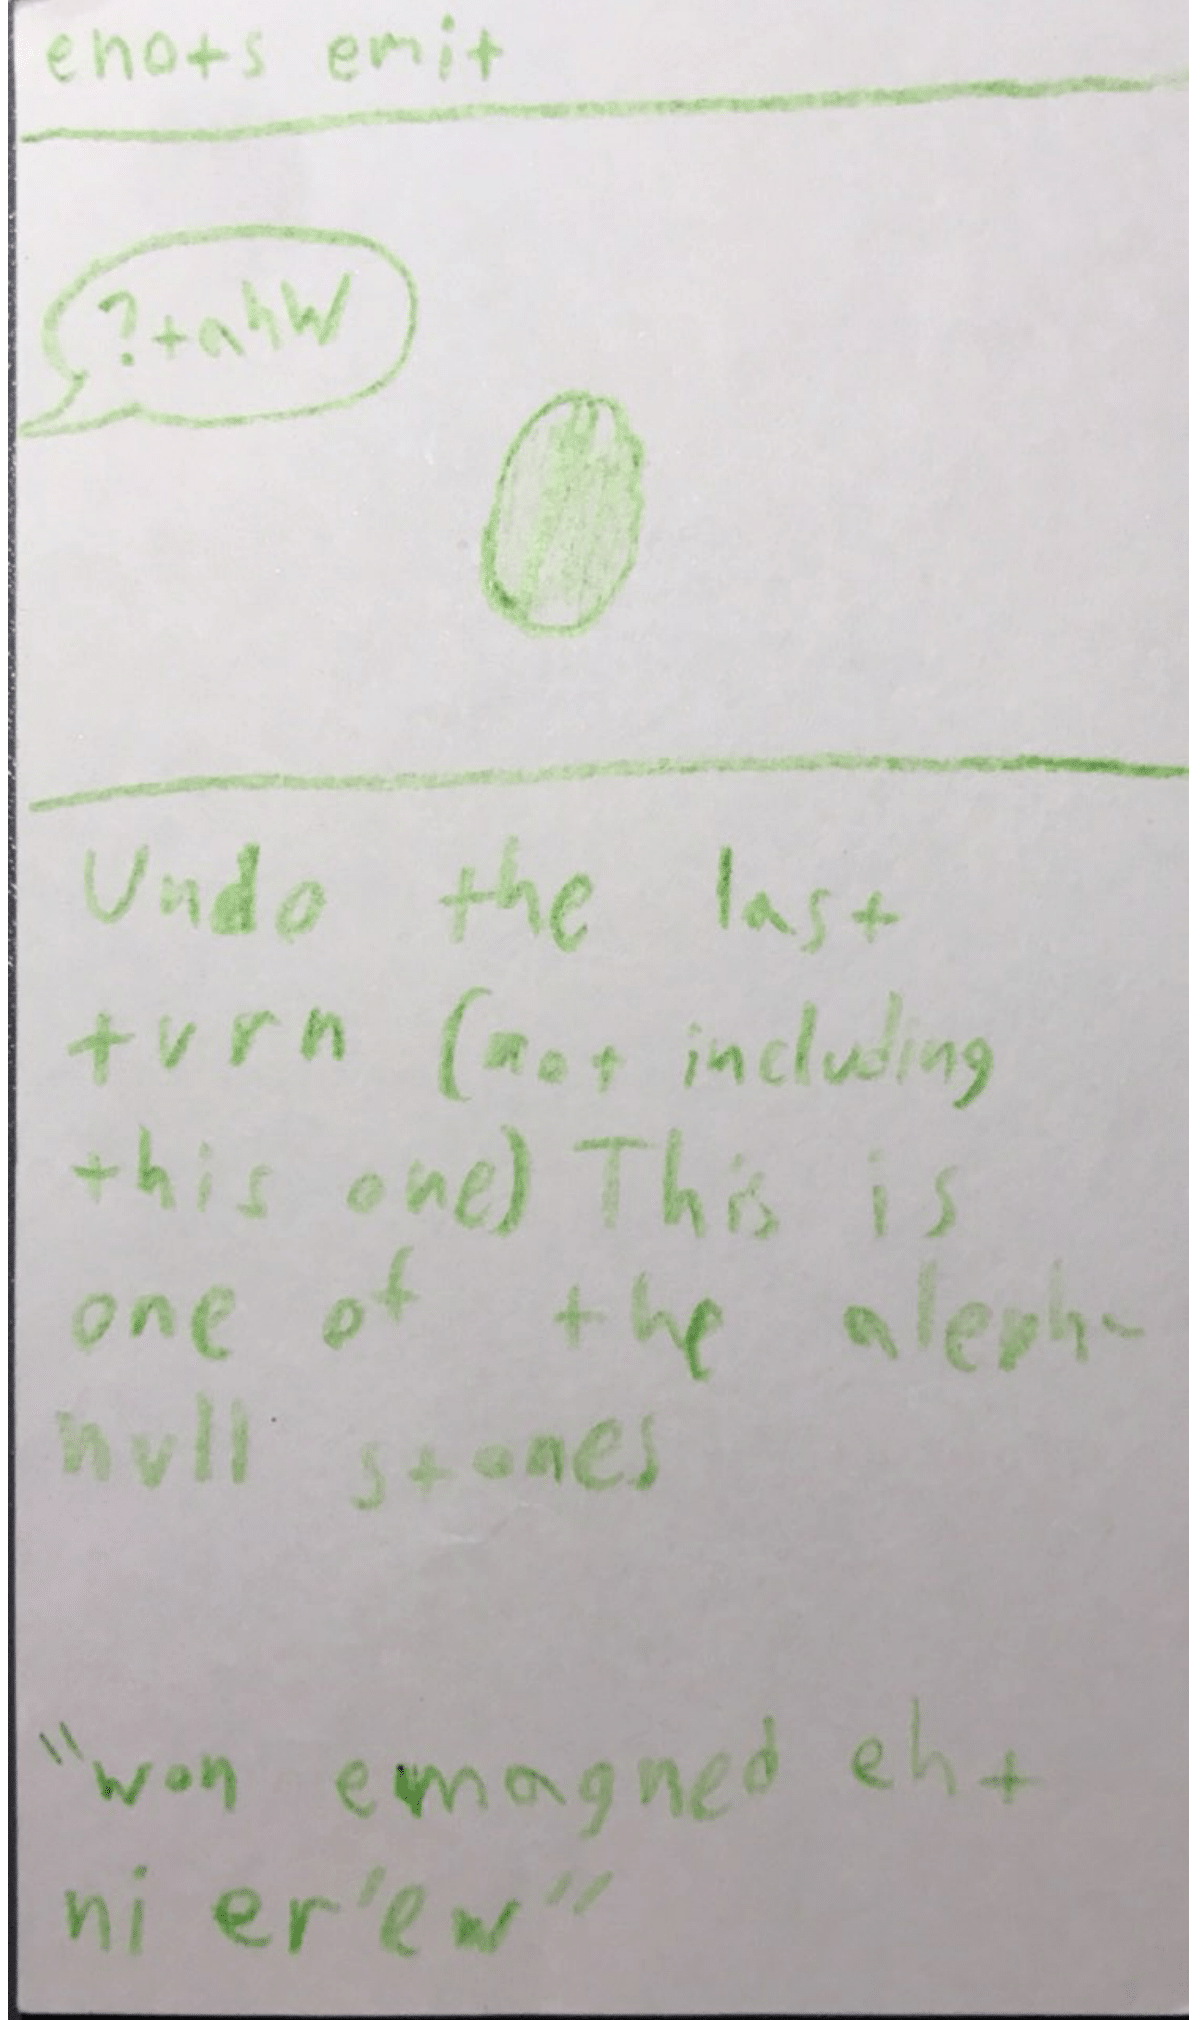 enots emit
?tahW
Undo the last
turn (not including
this one) This is
one of the aleph-
null stones
"won emagned eht
ni er'ew"